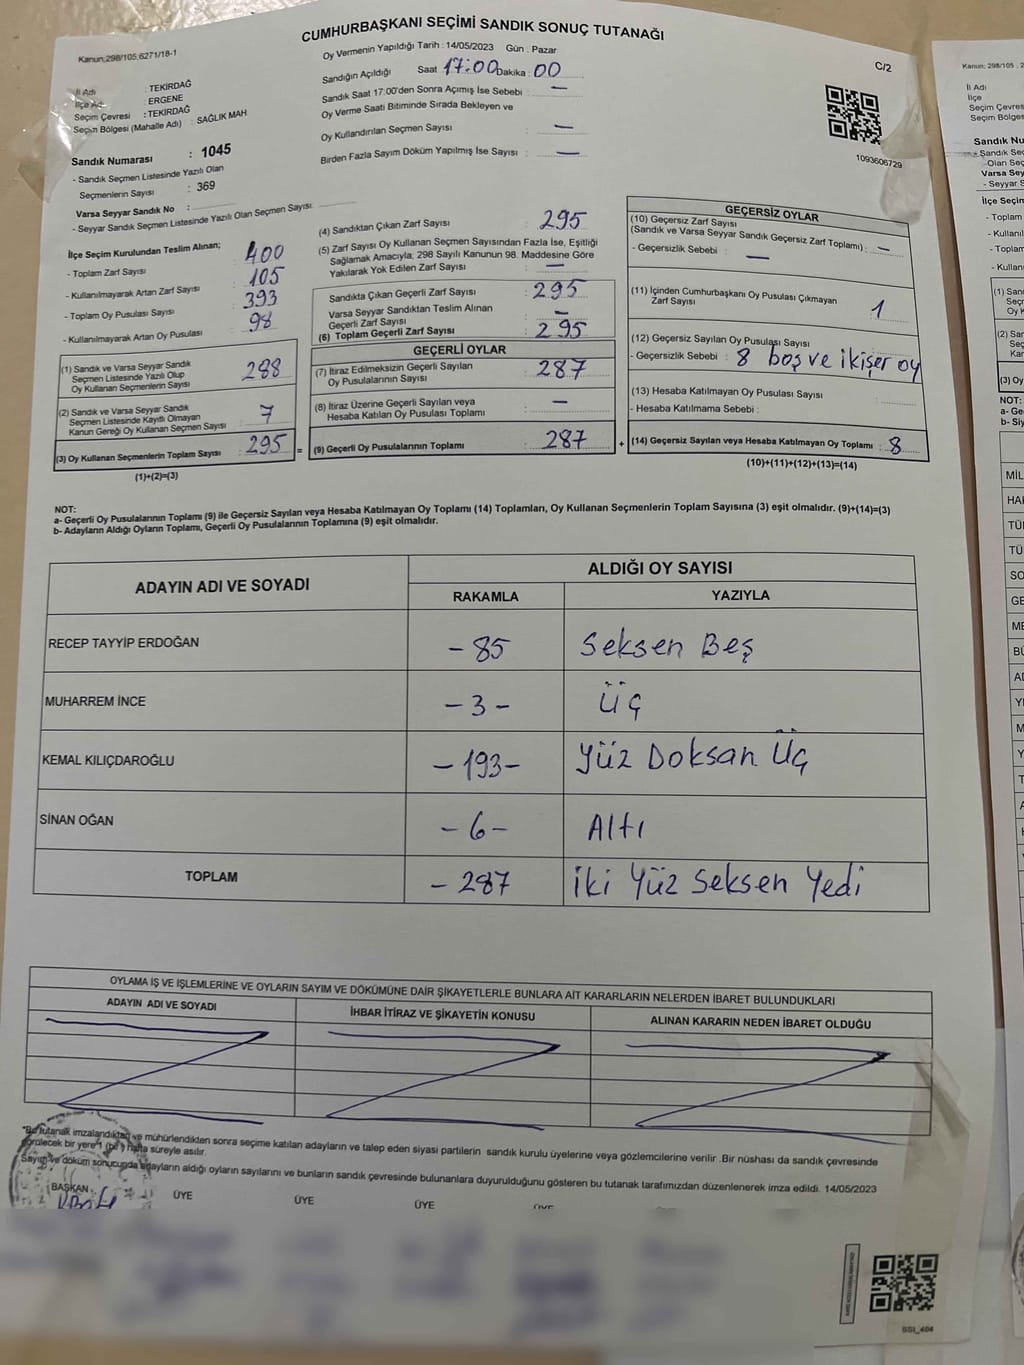 CUMHURBAŞKANI SEÇİMİ SANDIK SONUÇ TUTANAĞI
Kanun;298/105;6271/18-1
C/2
Oy Vermenin Yapıldığı Tarih : 14/05/2023 Gün : Pazar
Sandığın Açıldığı Saat 17:00 Dakika : 00
Sandık Saat 17:00'den Sonra Açımış İse Sebebi : —
Oy Verme Saati Bitiminde Sırada Bekleyen ve
Oy Kullandırılan Seçmen Sayısı : —
Birden Fazla Sayım Döküm Yapılmış İse Sayısı : —
İl Adı : TEKİRDAĞ
İlçe Adı : ERGENE
Seçim Çevresi : TEKİRDAĞ
Seçim Bölgesi (Mahalle Adı) : SAĞLIK MAH
Sandık Numarası : 1045
- Sandık Seçmen Listesinde Yazılı Olan
Seçmenlerin Sayısı : 369
Varsa Seyyar Sandık No :
- Seyyar Sandık Listesinde Yazılı Olan Seçmen Sayısı:
1093606729
İlçe Seçim Kurulundan Teslim Alınan;
- Toplam Zarf Sayısı 400
- Kullanılmayarak Artan Zarf Sayısı 105
- Toplam Oy Pusulası Sayısı 393
- Kullanılmayarak Artan Oy Pusulası 98
(1) Sandık ve Varsa Seyyar Sandık
Seçmen Listesinde Yazılı Olup
Oy Kullanan Seçmenlerin Sayısı 288
(2) Sandık ve Varsa Seyyar Sandık
Seçmen Listesinde Kayıtlı Olmayan
Kanun Gereği Oy Kullanan Seçmen Sayısı 7
(3) Oy Kullanan Seçmenlerin Toplam Sayısı : 295
(1)+(2)=(3)
(4) Sandıktan Çıkan Zarf Sayısı : 295
(5) Zarf Sayısı Oy Kullanan Seçmen Sayısından Fazla İse, Eşitliği
Sağlamak Amacıyla; 298 Sayılı Kanunun 98. Maddesine Göre
Yakılarak Yok Edilen Zarf Sayısı : —
Sandıkta Çıkan Geçerli Zarf Sayısı : 295
Varsa Seyyar Sandıktan Teslim Alınan
Geçerli Zarf Sayısı : —
(6) Toplam Geçerli Zarf Sayısı : 295
GEÇERLİ OYLAR
(7) İtiraz Edilmeksizin Geçerli Sayılan
Oy Pusulalarının Sayısı : 287
(8) İtiraz Üzerine Geçerli Sayılan veya
Hesaba Katılan Oy Pusulası Toplamı : —
= (9) Geçerli Oy Pusulalarının Toplamı : 287
GEÇERSİZ OYLAR
(10) Geçersiz Zarf Sayısı
(Sandık ve Varsa Seyyar Sandık Geçersiz Zarf Toplamı) : —
- Geçersizlik Sebebi : —
(11) İçinden Cumhurbaşkanı Oy Pusulası Çıkmayan
Zarf Sayısı 1
(12) Geçersiz Sayılan Oy Pusulası Sayısı
- Geçersizlik Sebebi : 8 boş ve ikişer oy
(13) Hesaba Katılmayan Oy Pusulası Sayısı :
- Hesaba Katılmama Sebebi :
+ (14) Geçersiz Sayılan veya Hesaba Katılmayan Oy Toplamı : 8
(10)+(11)+(12)+(13)=(14)
NOT:
a- Geçerli Oy Pusulalarının Toplamı (9) ile Geçersiz Sayılan veya Hesaba Katılmayan Oy Toplamı (14) Toplamları, Oy Kullanan Seçmenlerin Toplam Sayısına (3) eşit olmalıdır. (9)+(14)=(3)
b- Adayların Aldığı Oyların Toplamı, Geçerli Oy Pusulalarının Toplamına (9) eşit olmalıdır.
ADAYIN ADI VE SOYADI
ALDIĞI OY SAYISI
RAKAMLA YAZIYLA
RECEP TAYYİP ERDOĞAN - 85 Seksen Beş
MUHARREM İNCE - 3 - Üç
KEMAL KILIÇDAROĞLU - 193 - Yüz Doksan Üç
SİNAN OĞAN - 6 - Altı
TOPLAM - 287 İki Yüz Seksen Yedi
OYLAMA İŞ VE İŞLEMLERİNE VE OYLARIN SAYIM VE DÖKÜMÜNE DAİR ŞİKAYETLERLE BUNLARA AİT KARARLARIN NELERDEN İBARET BULUNDUKLARI
ADAYIN ADI VE SOYADI
İHBAR İTİRAZ VE ŞİKAYETİN KONUSU
ALINAN KARARIN NEDEN İBARET OLDUĞU
*Bu tutanak imzalandıktan ve mühürlendikten sonra seçime katılan adayların ve talep eden siyasi partilerin sandık kurulu üyelerine veya gözlemcilerine verilir .Bir nüshası da sandık çevresinde
görülecek bir yere 1 (bir) hafta süreyle asılır.
Sayım ve döküm sonucunda adayların aldığı oyların sayılarını ve bunların sandık çevresinde bulunanlara duyurulduğunu gösteren bu tutanak tarafımızdan düzenlenerek imza edildi. 14/05/2023
BAŞKAN ÜYE ÜYE ÜYE